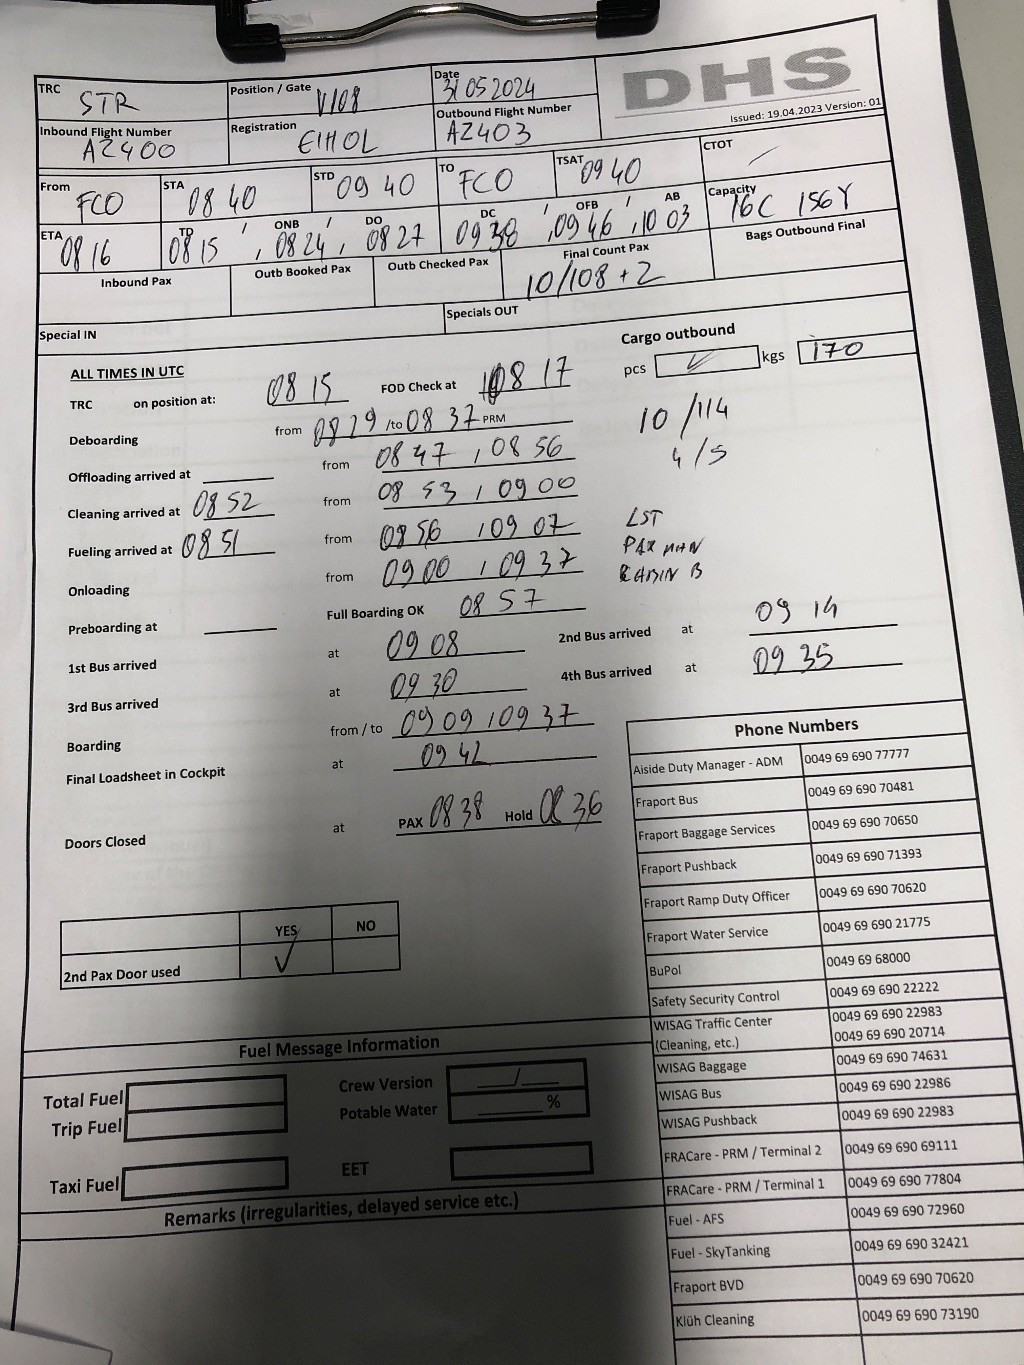 DHS
Issued: 19.04.2023 Version: 01
TRC STR
Position / Gate V108
Date 31 05 2024
Inbound Flight Number AZ400
Registration EIHOL
Outbound Flight Number AZ403
From FCO STA 08 40 STD 09 40 TO FCO TSAT 09 40 CTOT /
ETA 08 16 TD 08 15 / ONB 08 24 / DO 08 27 DC 09 38 / OFB 09 46 / AB 10 03 Capacity 16C 156Y
Inbound Pax Outb Booked Pax Outb Checked Pax Final Count Pax 10/108 + 2 Bags Outbound Final
Special IN Specials OUT
ALL TIMES IN UTC Cargo outbound
TRC on position at: 08 15 FOD Check at 08 17 pcs ✓ kgs 170
Deboarding from 08 29 /to 08 37 PRM 10 /114
Offloading arrived at from 08 47 , 08 56 4/5
Cleaning arrived at 08 52 from 08 53 , 09 00
Fueling arrived at 08 51 from 08 56 , 09 07 LST
Onloading from 09 00 , 09 37 PAX MHN
CABIN B
Preboarding at Full Boarding OK 08 57
1st Bus arrived at 09 08 2nd Bus arrived at 09 14
3rd Bus arrived at 09 30 4th Bus arrived at 09 35
Boarding from / to 09 09 , 09 37
Final Loadsheet in Cockpit at 09 42
Doors Closed at PAX 08 38 Hold 08 36
YES NO
2nd Pax Door used ✓
Fuel Message Information
Total Fuel Crew Version /
Trip Fuel Potable Water %
Taxi Fuel EET
Remarks (irregularities, delayed service etc.)
Phone Numbers
Aiside Duty Manager - ADM 0049 69 690 77777
Fraport Bus 0049 69 690 70481
Fraport Baggage Services 0049 69 690 70650
Fraport Pushback 0049 69 690 71393
Fraport Ramp Duty Officer 0049 69 690 70620
Fraport Water Service 0049 69 690 21775
BuPol 0049 69 68000
Safety Security Control 0049 69 690 22222
WISAG Traffic Center 0049 69 690 22983
(Cleaning, etc.) 0049 69 690 20714
WISAG Baggage 0049 69 690 74631
WISAG Bus 0049 69 690 22986
WISAG Pushback 0049 69 690 22983
FRACare - PRM / Terminal 2 0049 69 690 69111
FRACare - PRM / Terminal 1 0049 69 690 77804
Fuel - AFS 0049 69 690 72960
Fuel - SkyTanking 0049 69 690 32421
Fraport BVD 0049 69 690 70620
Klüh Cleaning 0049 69 690 73190